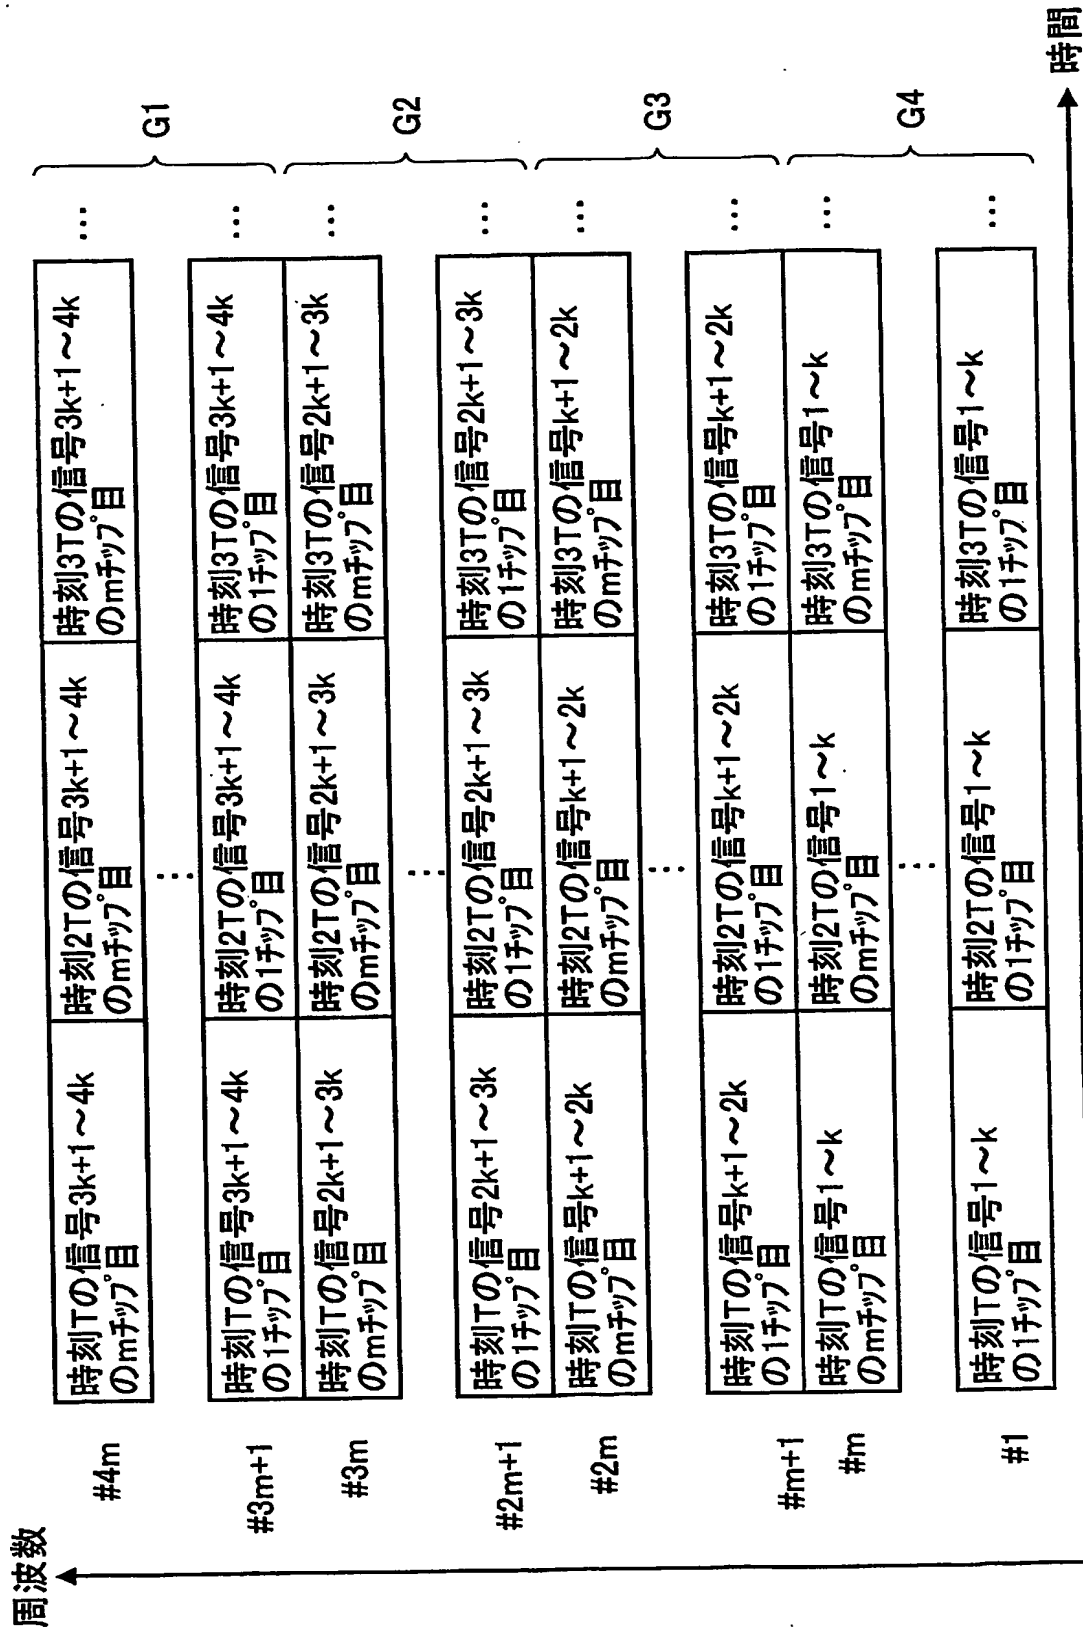 周波数
#4m
時刻Tの信号3k+1～4k
のmチップ目
時刻2Tの信号3k+1～4k
のmチップ目
時刻3Tの信号3k+1～4k
のmチップ目
…
G1
…
#3m+1
時刻Tの信号3k+1～4k
の1チップ目
時刻2Tの信号3k+1～4k
の1チップ目
時刻3Tの信号3k+1～4k
の1チップ目
…
#3m
時刻Tの信号2k+1～3k
のmチップ目
時刻2Tの信号2k+1～3k
のmチップ目
時刻3Tの信号2k+1～3k
のmチップ目
…
G2
…
#2m+1
時刻Tの信号2k+1～3k
の1チップ目
時刻2Tの信号2k+1～3k
の1チップ目
時刻3Tの信号2k+1～3k
の1チップ目
…
#2m
時刻Tの信号k+1～2k
のmチップ目
時刻2Tの信号k+1～2k
のmチップ目
時刻3Tの信号k+1～2k
のmチップ目
…
G3
…
#m+1
時刻Tの信号k+1～2k
の1チップ目
時刻2Tの信号k+1～2k
の1チップ目
時刻3Tの信号k+1～2k
の1チップ目
…
#m
時刻Tの信号1～k
のmチップ目
時刻2Tの信号1～k
のmチップ目
時刻3Tの信号1～k
のmチップ目
…
G4
…
#1
時刻Tの信号1～k
の1チップ目
時刻2Tの信号1～k
の1チップ目
時刻3Tの信号1～k
の1チップ目
…
時間